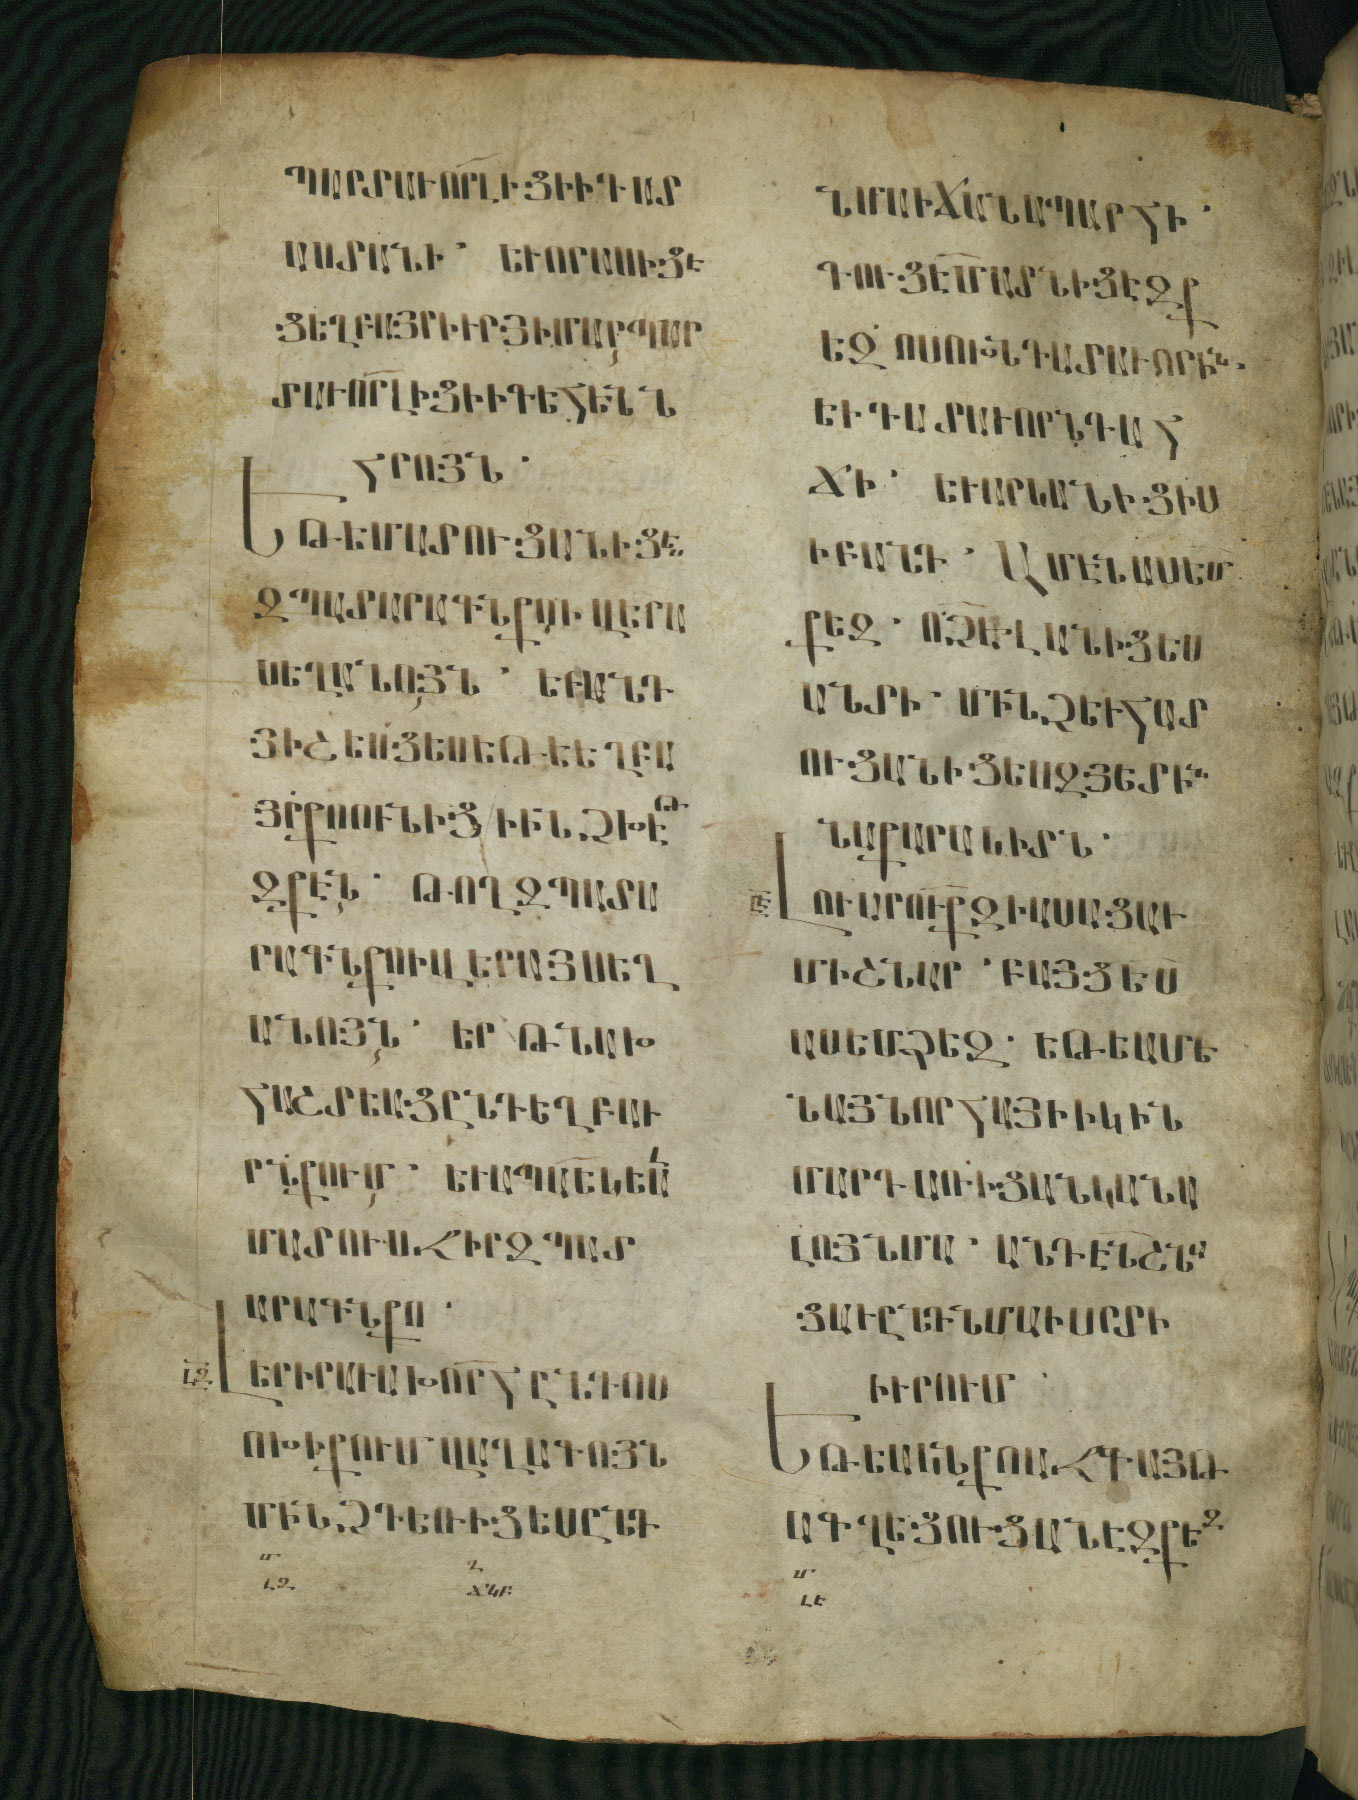 ՊԱՐՏԱՒՈՐ ԼԻՑԻ Ի ԴԱՏ
ԱՍՏԱՆԻ· ԵՒ ՈՐ ԱՍԻՑԷ
ՑԵՂԲԱՅՐ ԻՒՐ ՅԻՄԱՐ ՊԱՐ
ՏԱՒՈՐ ԼԻՑԻ Ի ԳԵՀԵՆՆ
ՀՐՈՅՆ·
ԵԹԷ ՄԱՏՈՒՑԱՆԻՑԷՍ
ԶՊԱՏԱՐԱԳՆ ՔՈ Ի ՎԵՐԱ
ՍԵՂԱՆՈՅՆ· ԵՒ ԱՆԴ
ՅԻՇԵՍՑԵՍ ԵԹԷ ԵՂԲԱ
ՅՐ ՔՈ ՈՒՆԻՑԻ ԻՆՉ ԽԷԹ
ԶՔԷՆ· ԹՈՂ ԶՊԱՏԱ
ՐԱԳՆ ՔՈ Ի ՎԵՐԱՅ ՍԵՂ
ԱՆՈՅՆ· ԵՐԹ ՆԱԽ
ՀԱՇՏԵԱՑ ԸՆԴ ԵՂԲԱՒ
ՐՆ ՔՈՒՄ· ԵՒ ԱՊԱ ԵԿԵԱԼ
ՄԱՏՈՒՍՋԻՐ ԶՊԱՏ
ԱՐԱԳՆ ՔՈ·
ԼԵՐ ԻՐԱՒԱԽՈՐՀ ԸՆԴ ՈՍ
ՈԽԻ ՔՈՒՄ ՎԱՂԱԳՈՅՆ
ՄԻՆՉԴԵՌ ԻՑԵՍ ԸՆԴ
Մ
ԼԶ
Ղ
ՃԿԲ
ՆՄԱ Ի ՃԱՆԱՊԱՐՀԻ·
ԳՈՒՑԷ ՄԱՏՆԻՑԷ ԶՔ
ԵԶ ՈՍՈԽՆ ԴԱՏԱՒՈՐԻՆ·
ԵՒ ԴԱՏԱՒՈՐՆ ԴԱՀ
ՃԻ· ԵՒ ԱՐԿԱՆԻՑԻՍ
Ի ԲԱՆԴ· ԱՄԷՆ ԱՍԵՄ
ՔԵԶ· ՈՉ ԵԼԱՆԻՑԵՍ
ԱՆՏԻ· ՄԻՆՉԵՒ ՀԱՏ
ՈՒՑԱՆԻՑԵՍ ԶՅԵՏԻՆ
ՆԱՔԱՐԱԿԻՏՆ·
ԼՈՒԱՐՈՒՔ ԶԻ ԱՍԱՑԱՒ
ՄԻ ՇՆԱՐ· ԲԱՅՑ ԵՍ
ԱՍԵՄ ՁԵԶ· ԵԹԷ ԱՄԵ
ՆԱՅՆ ՈՐ ՀԱՅԻ Ի ԿԻՆ
ՄԱՐԴ ԱՌ Ի ՑԱՆԿԱՆԱ
ԼՈՅ ՆՄԱ· ԱՆԴԷՆ ՇՆ
ՑԱՒ ԸՆԴ ՆՄԱ Ի ՍՐՏԻ
ԻՒՐՈՒՄ
ԵԹԷ ԱԿՆ ՔՈ ԱՋ ԳԱՅԹ
ԱԳՂԵՑՈՒՑԱՆԷ ԶՔԵԶ
Մ
ԼԷ